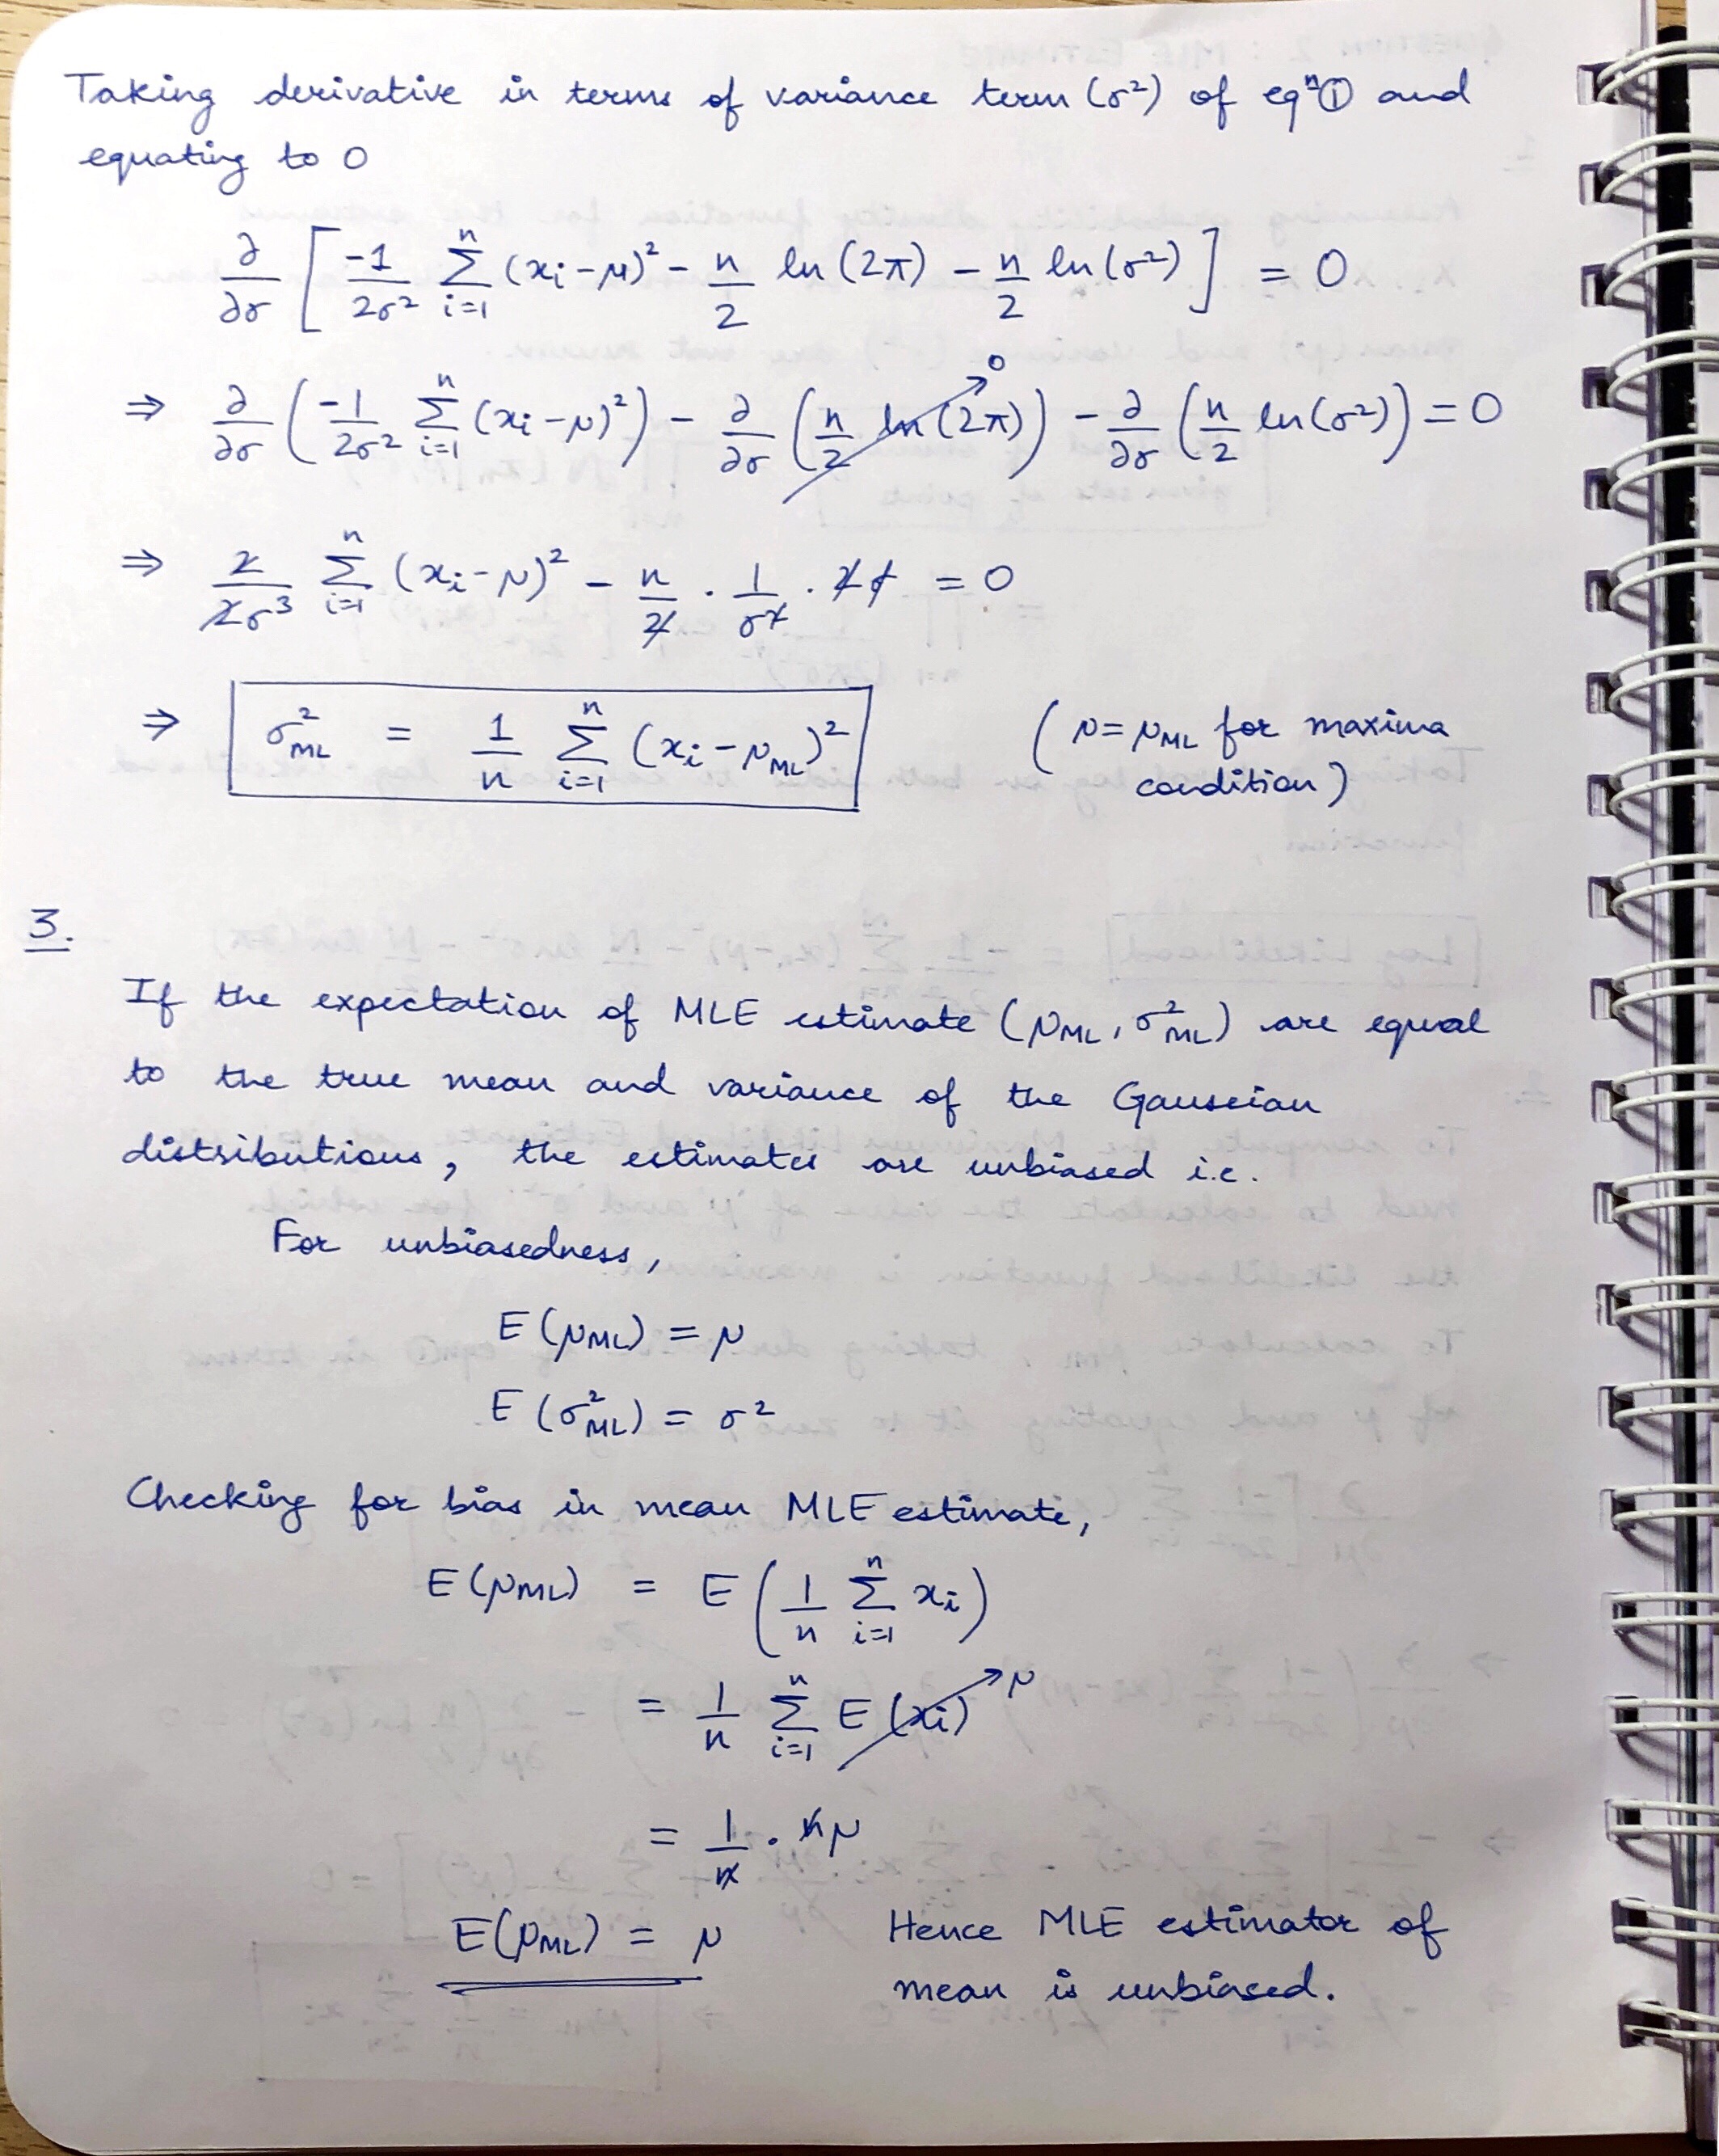 Taking derivative in terms of variance term (σ²) of eqⁿ① and
equating to 0
∂/∂σ [ -1/2σ² Σ_{i=1}^{n} (xi-μ)² - n/2 ln(2π) - n/2 ln(σ²) ] = 0
⇒ ∂/∂σ ( -1/2σ² Σ_{i=1}^{n} (xi-μ)² ) - ∂/∂σ ( n/2 ln(2π) )→0 - ∂/∂σ ( n/2 ln(σ²) ) = 0
⇒ 2/2σ³ Σ_{i=1}^{n} (xi-μ)² - n/2 · 1/σ² · 2σ = 0
⇒ σ²_ML = 1/n Σ_{i=1}^{n} (xi-μ_ML)² (μ=μ_ML for maxima
condition)
3.
If the expectation of MLE estimate (μ_ML, σ²_ML) are equal
to the true mean and variance of the Gaussian
distributions, the estimates are unbiased i.e.
For unbiasedness,
E(μ_ML) = μ
E(σ²_ML) = σ²
Checking for bias in mean MLE estimate,
E(μ_ML) = E( 1/n Σ_{i=1}^{n} xi )
= 1/n Σ_{i=1}^{n} E(xi)→μ
= 1/n · nμ
E(μ_ML) = μ Hence MLE estimator of
mean is unbiased.